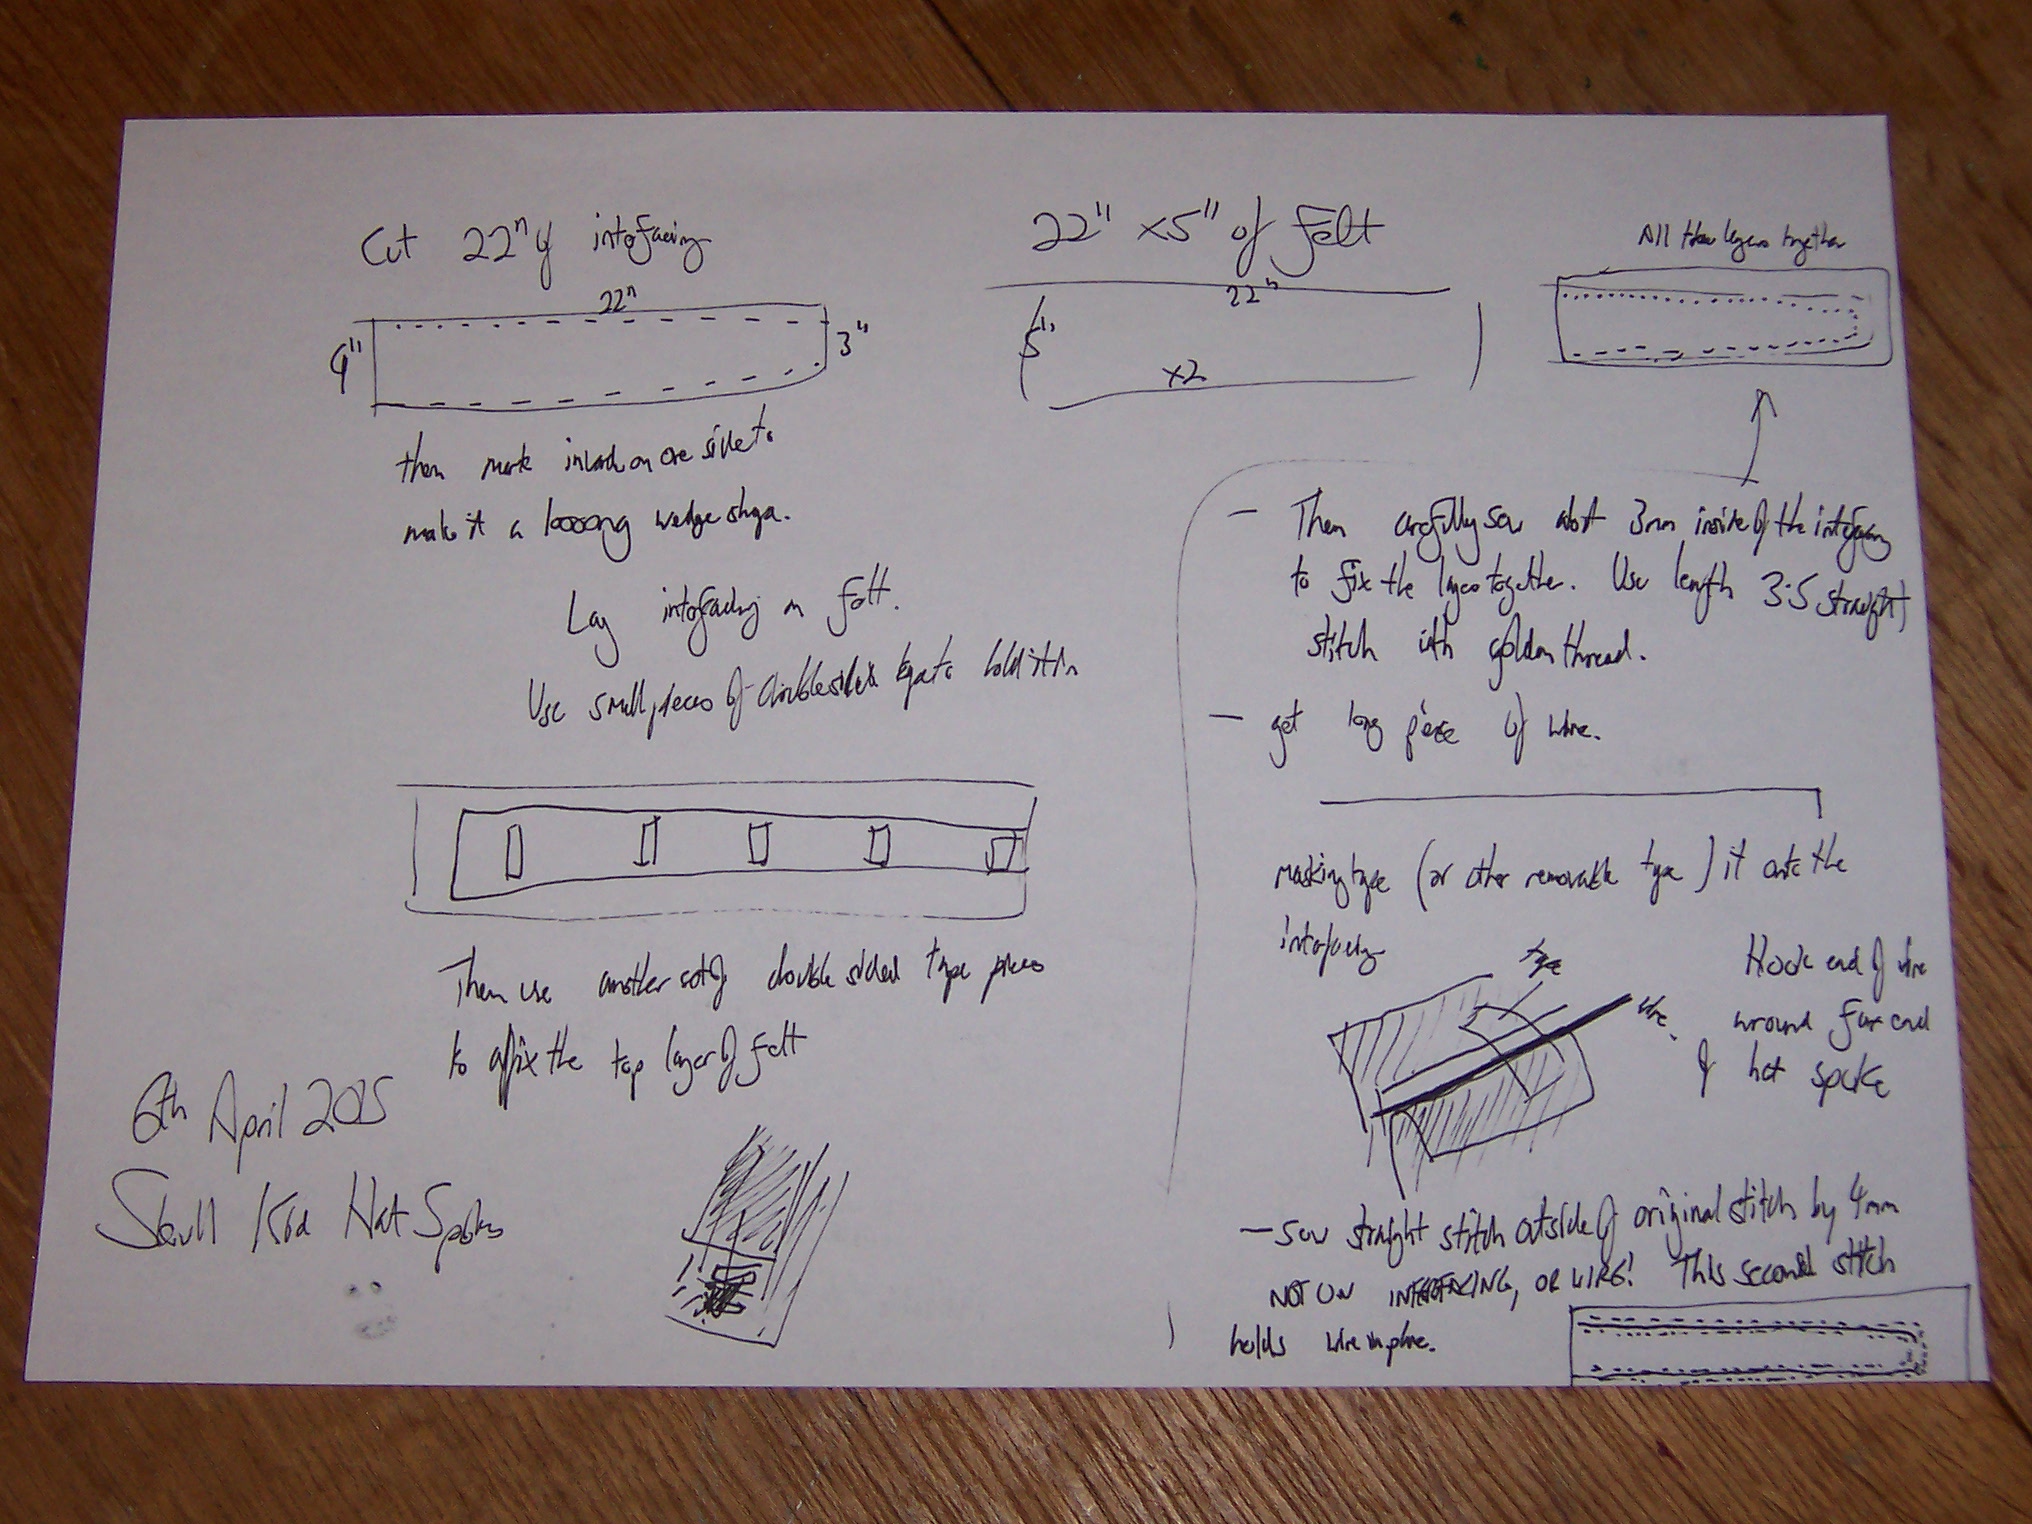 Cut 22" of interfacing
22"
4"
3"
then mark inward on one side to
make it a loooong wedge shape.
Lay interfacing on felt.
Use small pieces of double sided tape to hold it in
Then use another set of double sided tape pieces
to affix the top layer of felt
6th April 2015
Skull Kid Hat Spokes
22" x5" of felt
22"
5"
x2
All three layers together
- Then carefully sew about 3mm inside of the interfacing
to fix the layers together. Use length 3.5 straight
stitch with golden thread.
- get long piece of wire.
masking tape (or other removable tape) it onto the
interfacing
tape
wire
Hook end of wire
around far end
of hat spoke
- Sew straight stitch outside of original stitch by 4mm
NOT ON INTERFACING, OR WIRE! This second stitch
holds wire in place.